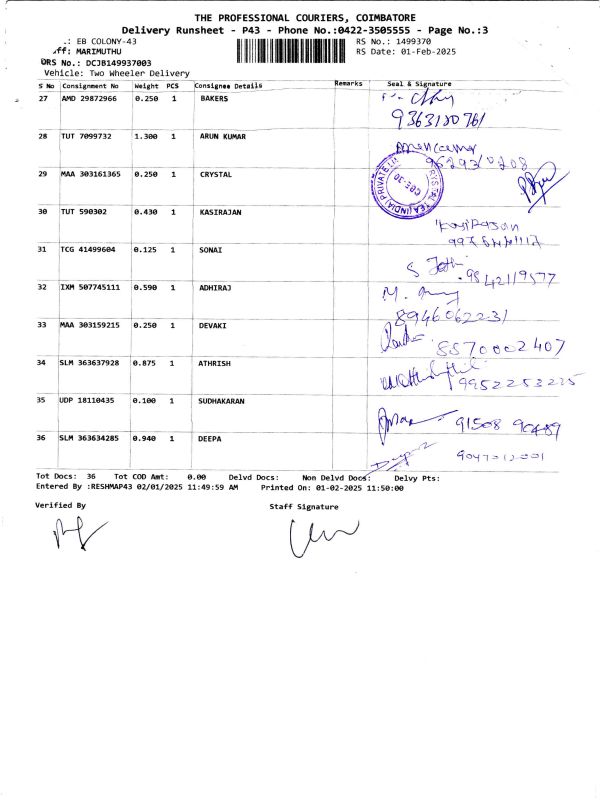 THE PROFESSIONAL COURIERS, COIMBATORE
Delivery Runsheet - P43 - Phone No.:0422-3505555 - Page No.:3
.: EB COLONY-43
RS No.: 1499370
ff: MARIMUTHU
RS Date: 01-Feb-2025
DRS No.: DCJB149937003
Vehicle: Two Wheeler Delivery
S No Consignment No Weight PCS Consignee Details Remarks Seal & Signature
27 AMD 29872966 0.250 1 BAKERS
9363180761
28 TUT 7099732 1.300 1 ARUN KUMAR
29 MAA 303161365 0.250 1 CRYSTAL
CRYSTAL TEA (INDIA) PRIVATE LIMITED
30 TUT 590302 0.430 1 KASIRAJAN
Kasirajan
31 TCG 41499604 0.125 1 SONAI
S
9842119577
32 IXM 507745111 0.590 1 ADHIRAJ
M.
8946062231
33 MAA 303159215 0.250 1 DEVAKI
8870002407
34 SLM 363637928 0.875 1 ATHRISH
9952253225
35 UDP 18110435 0.100 1 SUDHAKARAN
91508 90489
36 SLM 363634285 0.940 1 DEEPA
Tot Docs: 36 Tot COD Amt: 0.00 Delvd Docs: Non Delvd Docs: Delvy Pts:
Entered By :RESHMAP43 02/01/2025 11:49:59 AM Printed On: 01-02-2025 11:50:00
Verified By Staff Signature